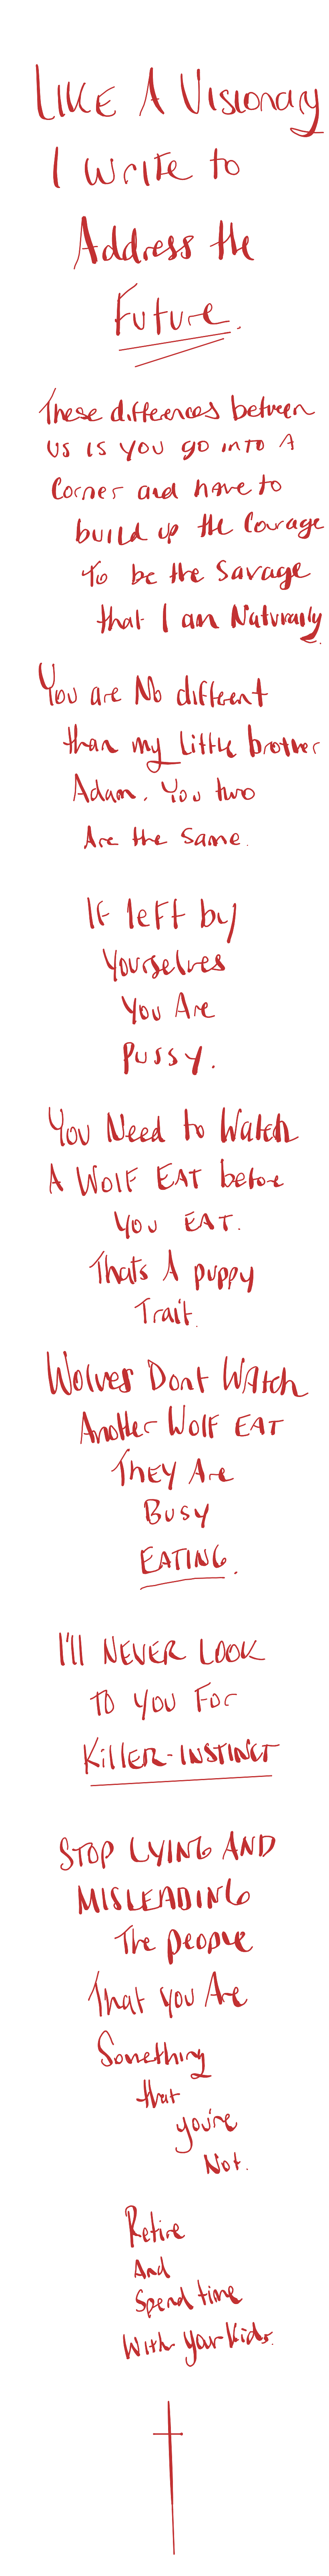 LIKE A Visionary
I write to
Address the
Future.
These differences between
us is you go into A
Corner and have to
build up the Courage
To be the Savage
that I am Naturally.
You are No different
than my little brother
Adam. You two
Are the same.
If left by
Yourselves
You Are
Pussy.
You Need to Watch
A WOLF EAT before
you EAT.
Thats A puppy
Trait.
Wolves Dont Watch
Another Wolf EAT
THEY Are
Busy
EATING.
I'll NEVER LOOK
TO YOU For
KillER-INSTINCT
STOP LYING AND
MISLEADING
The people
That you Are
Something
that
you're
Not.
Retire
And
Spend time
With your kids.